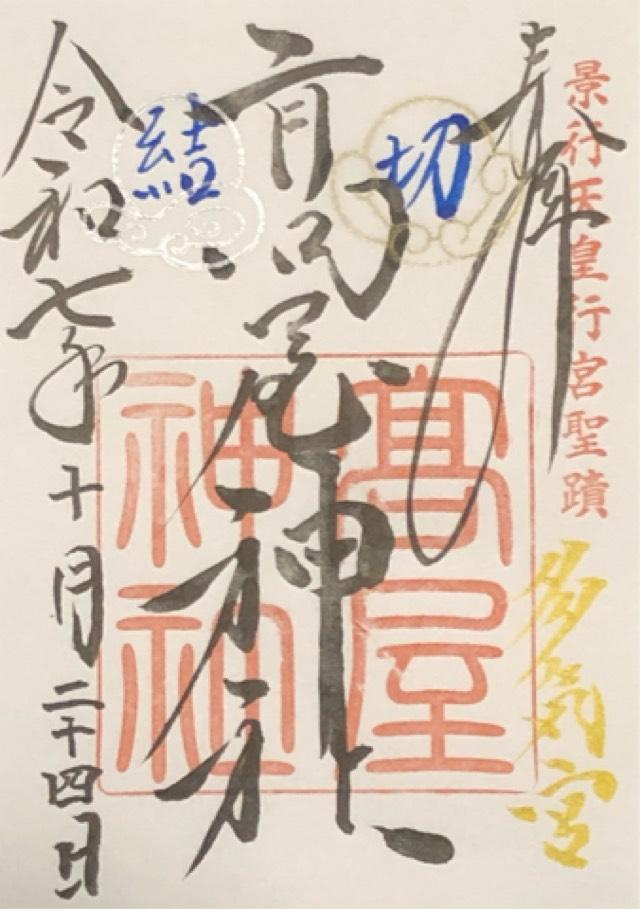 奉拝
景行天皇行宮聖蹟
多気宮
切
結
高屋神社
髙屋
神社
令和七年
十月二十四日